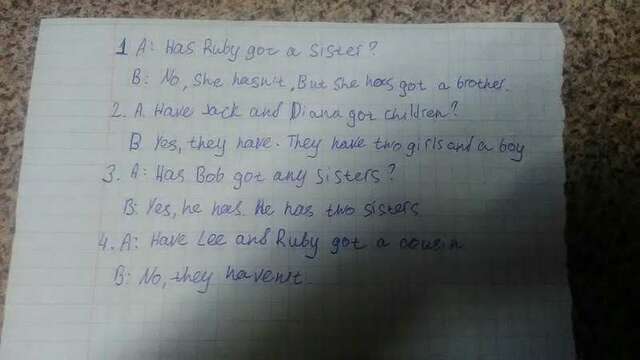 1 A: Has Ruby got a sister?
B: No, she hasn't, But she has got a brother.
2. A. Have Jack and Diana got children?
B Yes, they have. They have two girls and a boy
3. A: Has Bob got any sisters?
B: Yes, he has. He has two sisters
4. A: Have Lee and Ruby got a cousin
B: No, they haven't.